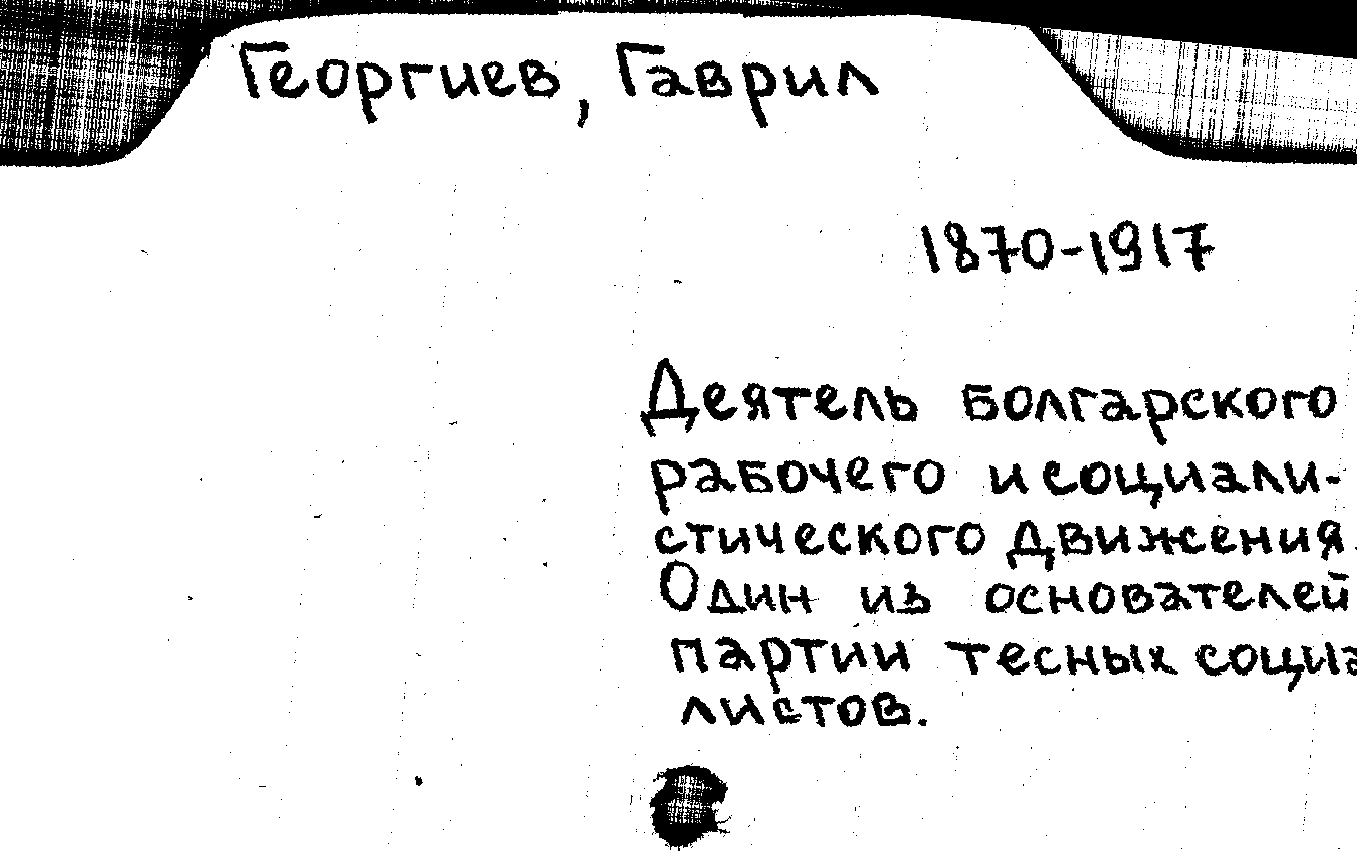 Георгиев, Гаврил
1870-1917
Деятель болгарского
рабочего и социали-
стического движения.
Один из основателей
партии тесных социа
листов.